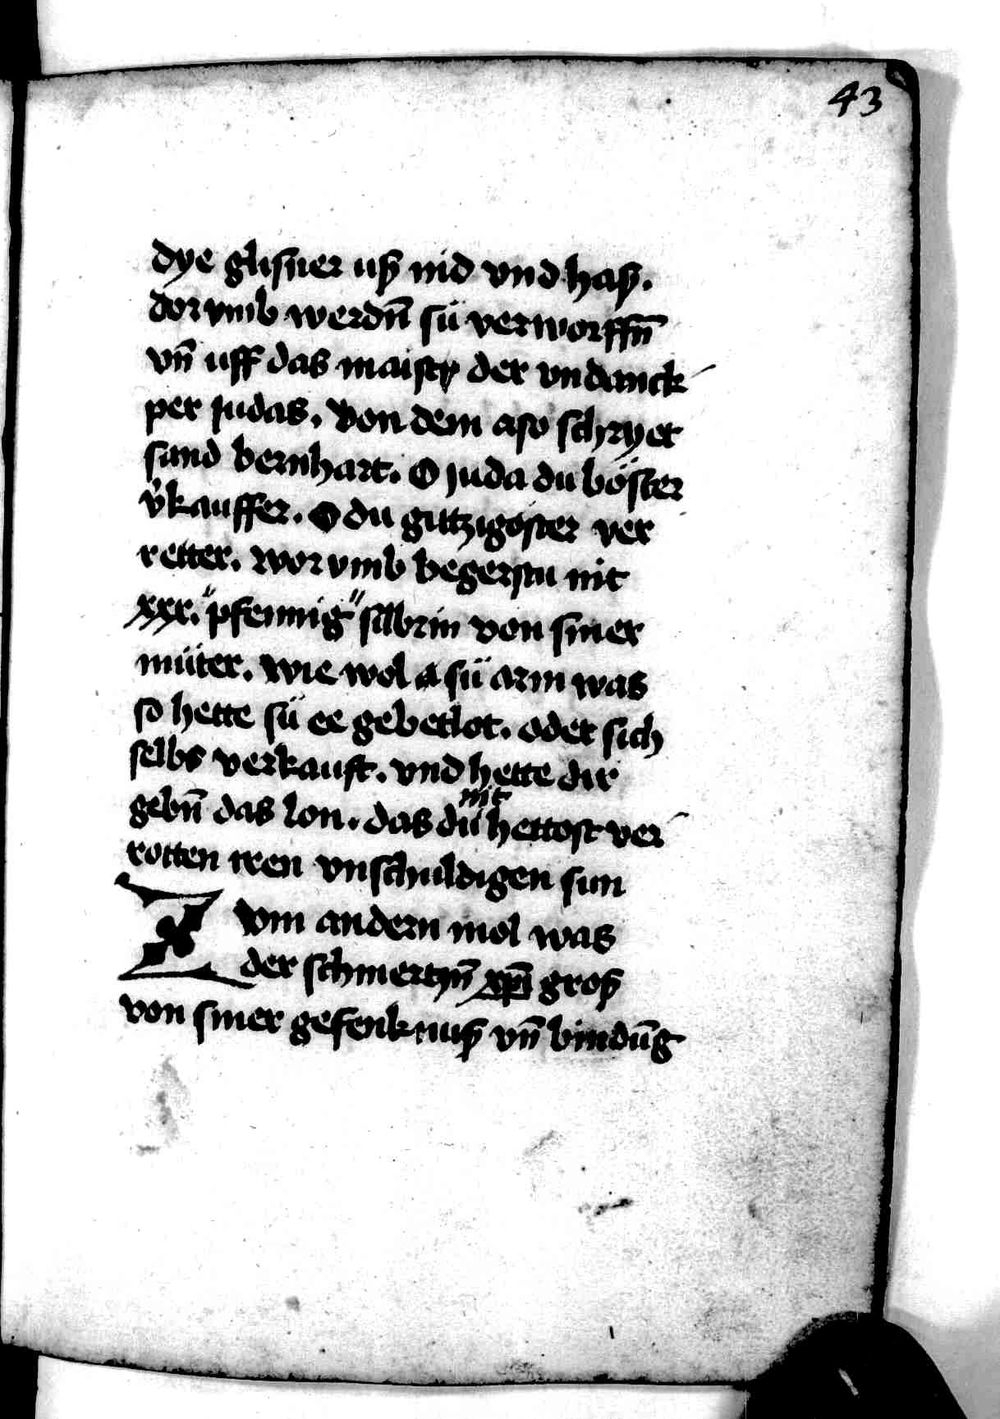 43
dye glisner uß nid vnd haß.
dor vmb werdn̄ sü verworffn̄
vn̄ uff das maist der vndanck
per judas. Von dem aso schryet
sand bernhart. O Juda du böster
v̾kauffer. O du gittzigoster ver
retter. wor vmb begerstu nit
xxx. "pfennig" silbrin von siner
müter. wie wol a sü arm was
so hette sü ee gebetlot. oder sich
selbs verkauft. vnd hette dir
gebn̄ das lon. das du nit hettost ver
rotten iren vnschuldigen sun
Zvm andern mol was
der schmertzn̄ xp̄i groß
von siner gefenknuß vn̄ bindūg